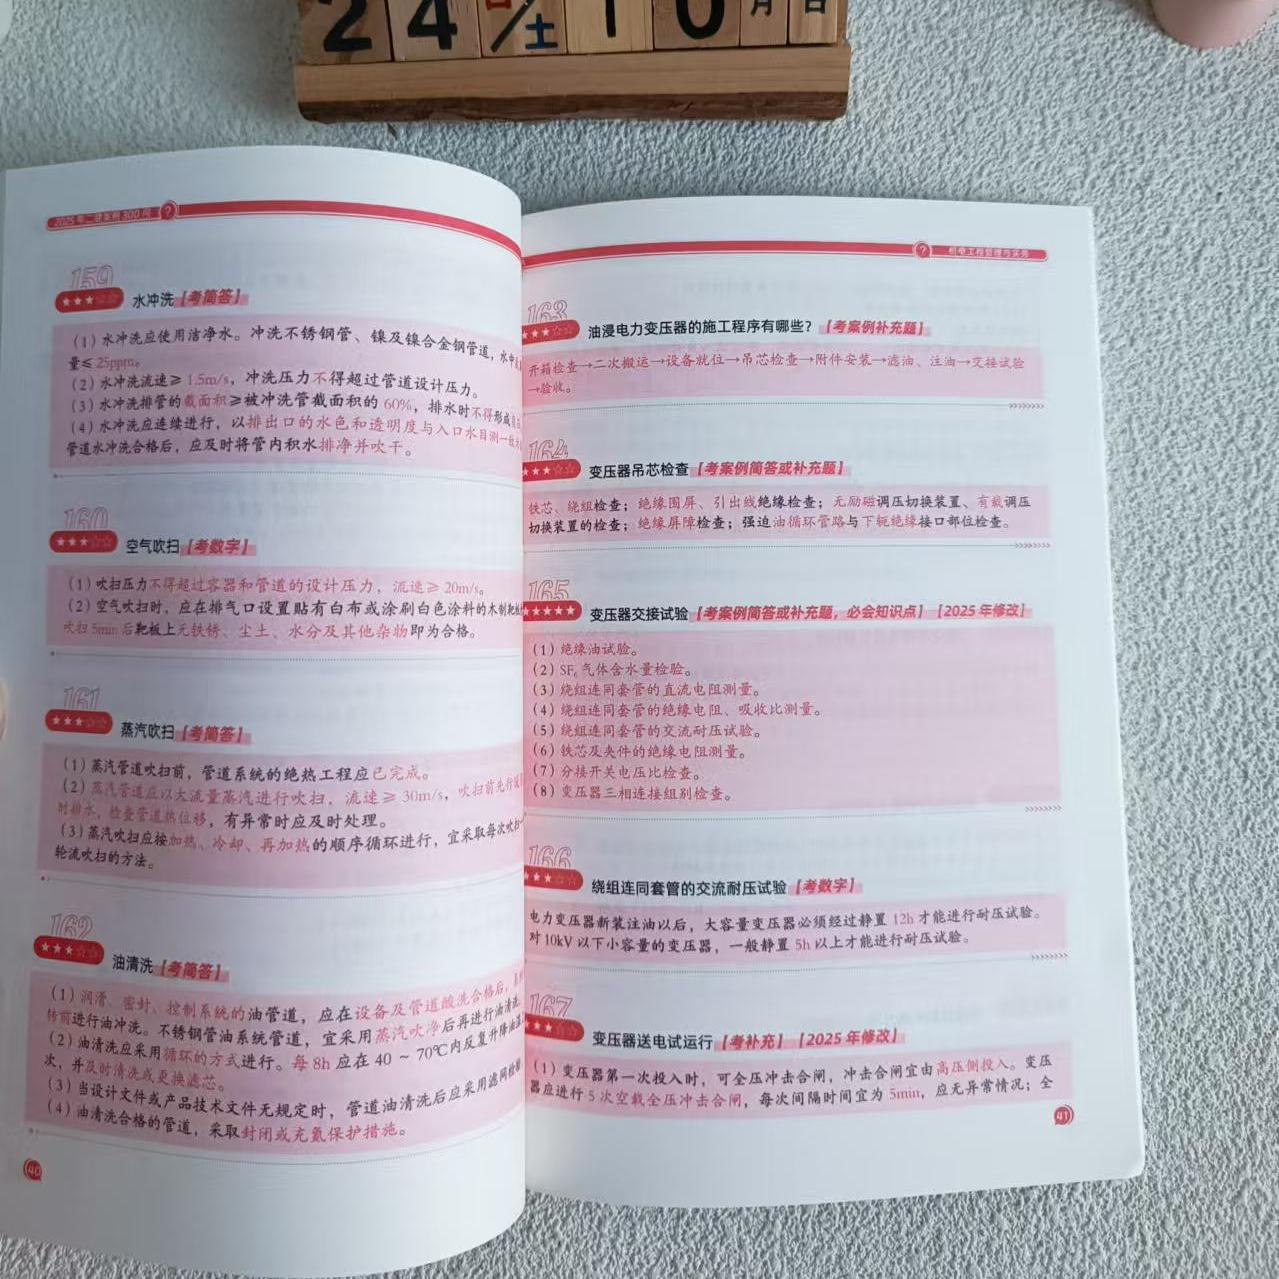 24
土
10
月
日
2025年二建案例300问
?
159
水冲洗【考简答】
(1)水冲洗应使用洁净水。冲洗不锈钢管、镍及镍合金钢管道，水中
量≤25ppm。
(2)水冲洗流速≥1.5m/s，冲洗压力不得超过管道设计压力。
(3)水冲洗排管的截面积≥被冲洗管截面积的60%，排水时不得形成
(4)水冲洗应连续进行，以排出口的水色和透明度与入口水目测一致
管道水冲洗合格后，应及时将管内积水排净并吹干。
160
空气吹扫【考数字】
(1)吹扫压力不得超过容器和管道的设计压力，流速≥20m/s。
(2)空气吹扫时，应在排气口设置贴有白布或涂刷白色涂料的木制靶板
吹扫5min后靶板上无铁锈、尘土、水分及其他杂物即为合格。
161
蒸汽吹扫【考简答】
(1)蒸汽管道吹扫前，管道系统的绝热工程应已完成。
(2)蒸汽管道应以大流量蒸汽进行吹扫，流速≥30m/s，吹扫前先行
时排水，检查管道热位移，有异常时应及时处理。
(3)蒸汽吹扫应按加热、冷却、再加热的顺序循环进行，宜采取每次吹扫一
轮流吹扫的方法。
162
油清洗【考简答】
(1)润滑、密封、控制系统的油管道，应在设备及管道酸洗合格后，
转前进行油冲洗。不锈钢管油系统管道，宜采用蒸汽吹净后再进行油清洗。
(2)油清洗应采用循环的方式进行。每8h应在40～70℃内反复升降油温
次，并及时清洗或更换滤芯。
(3)当设计文件或产品技术文件无规定时，管道油清洗后应采用滤网检验
(4)油清洗合格的管道，采取封闭或充氮保护措施。
40
?
机电工程管理与实务
163
油浸电力变压器的施工程序有哪些？【考案例补充题】
开箱检查→二次搬运→设备就位→吊芯检查→附件安装→滤油、注油→交接试验
→验收。
164
变压器吊芯检查【考案例简答或补充题】
铁芯、绕组检查；绝缘围屏、引出线绝缘检查；无励磁调压切换装置、有载调压
切换装置的检查；绝缘屏障检查；强迫油循环管路与下轭绝缘接口部位检查。
165
变压器交接试验【考案例简答或补充题，必会知识点】【2025年修改】
(1)绝缘油试验。
(2)SF₆气体含水量检验。
(3)绕组连同套管的直流电阻测量。
(4)绕组连同套管的绝缘电阻、吸收比测量。
(5)绕组连同套管的交流耐压试验。
(6)铁芯及夹件的绝缘电阻测量。
(7)分接开关电压比检查。
(8)变压器三相连接组别检查。
166
绕组连同套管的交流耐压试验【考数字】
电力变压器新装注油以后，大容量变压器必须经过静置12h才能进行耐压试验。
对10kV以下小容量的变压器，一般静置5h以上才能进行耐压试验。
167
变压器送电试运行【考补充】【2025年修改】
(1)变压器第一次投入时，可全压冲击合闸，冲击合闸宜由高压侧投入。变压
器应进行5次空载全压冲击合闸，每次间隔时间宜为5min，应无异常情况；全
41